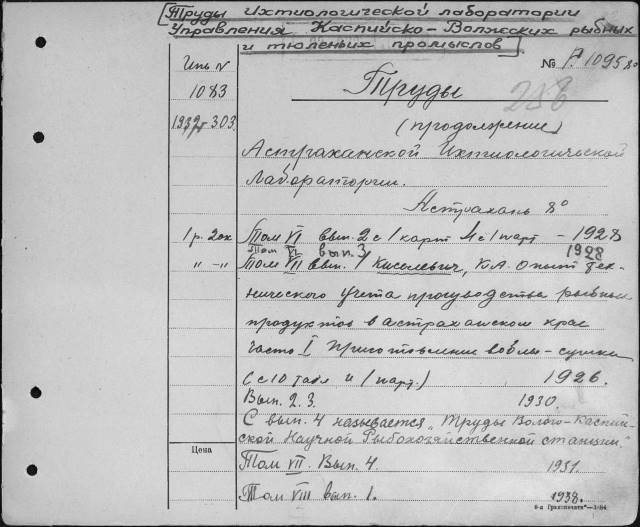 [Труды Ихтиологической лаборатории
Управления Каспийско-Волжских рыбных
и тюленьих промыслов]
Инв N
№ А 1095 8°
1083
Труды
258
1932г 303
(продолжение)
Астраханской Ихтиологической
Лаборатории.
Астрахань 8°
1 р. 20к
Том VI вып. 2 с 1 карт 4 с 1 парт - 1928
Том VI вып. 3 1928
" - "
Том VII вып. 1 Киселевич, К.А. Опыт тех-
нического учета производства рыбных
продуктов в астраханском крае
часть I Приготовление воблы-сушки
(с 10 табл и 1 парт.) 1926.
Вып. 2.3. 1930.
С вып. 4 называется "Труды Волго-Каспий-
ской Научной Рыбохозяйственной станции."
Цена
Том VII. Вып. 4. 1931.
Том VIII вып. 1. 1938.
6-я Гракпечати"—3/84